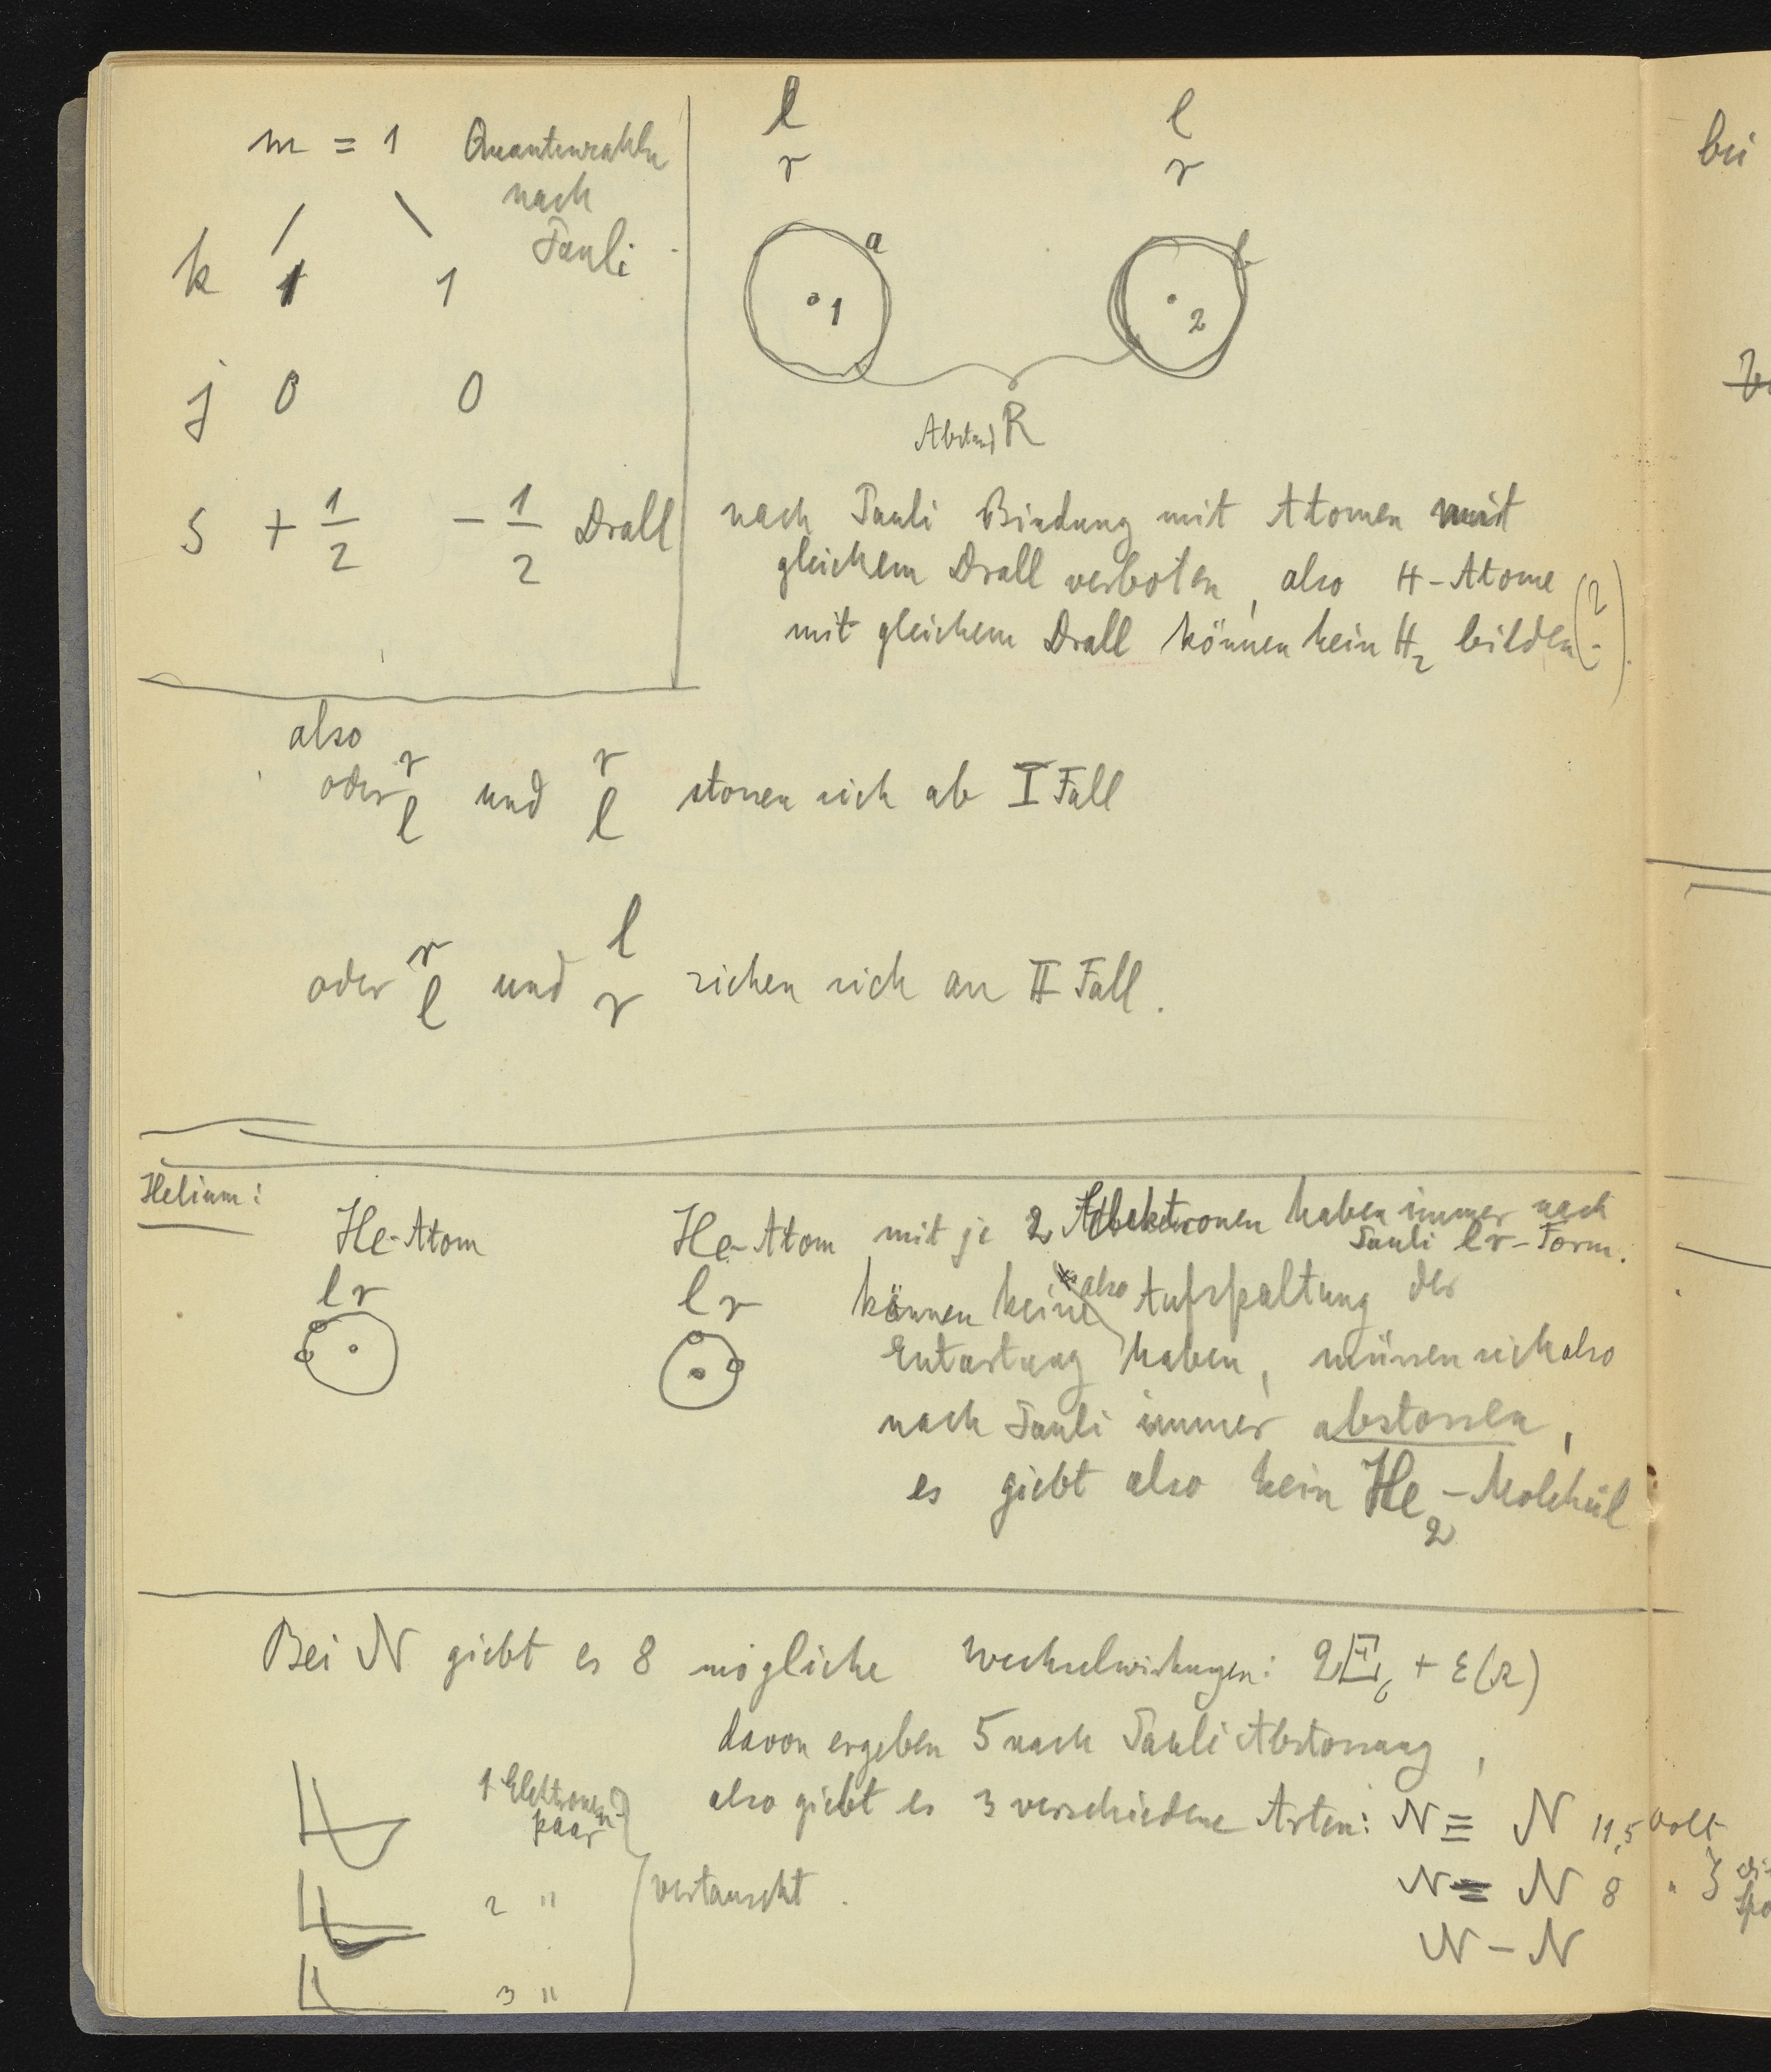 m = 1 Quantenzahlen
nach
Pauli
k 1 1
j 0 0
s + 1/2 - 1/2 Drall
l l
r r
a b
1 2
Abstand R
nach Pauli Bindung mit Atomen mit
gleichem Drall verboten, also H-Atome
mit gleichem Drall können kein H2 bilden (?).
also
oder r l und r l stossen sich ab I Fall
oder r l und l r ziehen sich an II Fall.
Helium:
He-Atom He-Atom mit je 2 Elektronen haben immer nach
Pauli lr-Form.
lr lr können keine also Aufspaltung der
Entartung haben, müssen sich also
nach Pauli immer abstossen,
es giebt also kein He2-Molekül
Bei N giebt es 8 mögliche Wechselwirkungen: 2E0 + ε(R)
davon ergeben 5 nach Pauli Abstossung,
also giebt es 3 verschiedene Arten: N ≡ N 11,5 Volt
1 Elektronen-
paar
N = N 8 "
2 " vertauscht.
N - N
3 "
bei